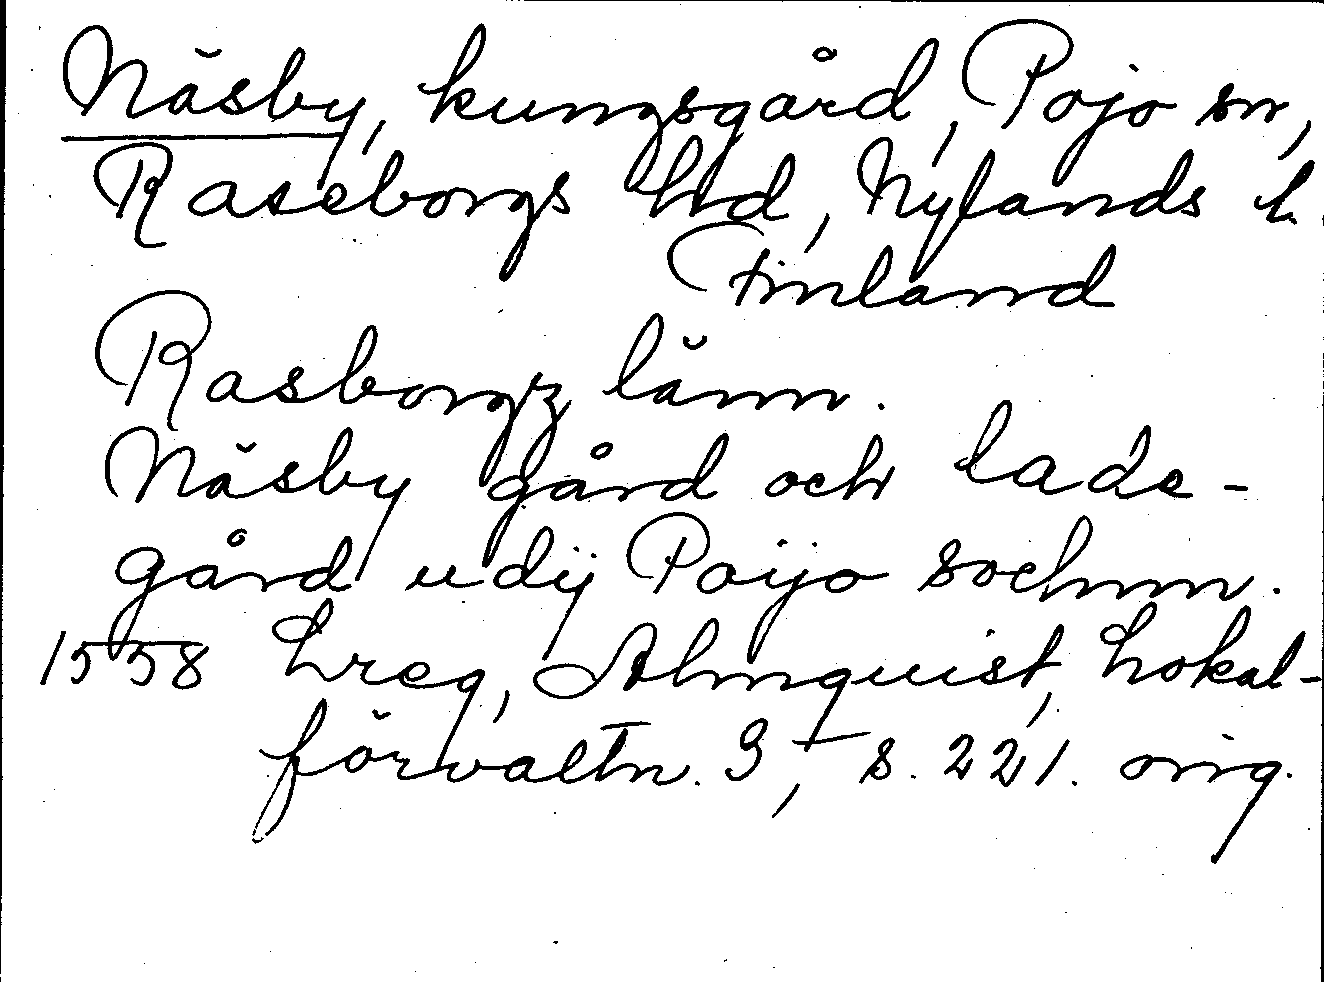 Näsby, kungsgård, Pojo sn,
Raseborgs hd, Nylands l.
Finland
Rasborgz länn.
Näsby gård och lade-
gård udij Poijo sochnn.
1558 Lreg, Almquist, Lokal-
förvaltn. 3, s. 221. orig.